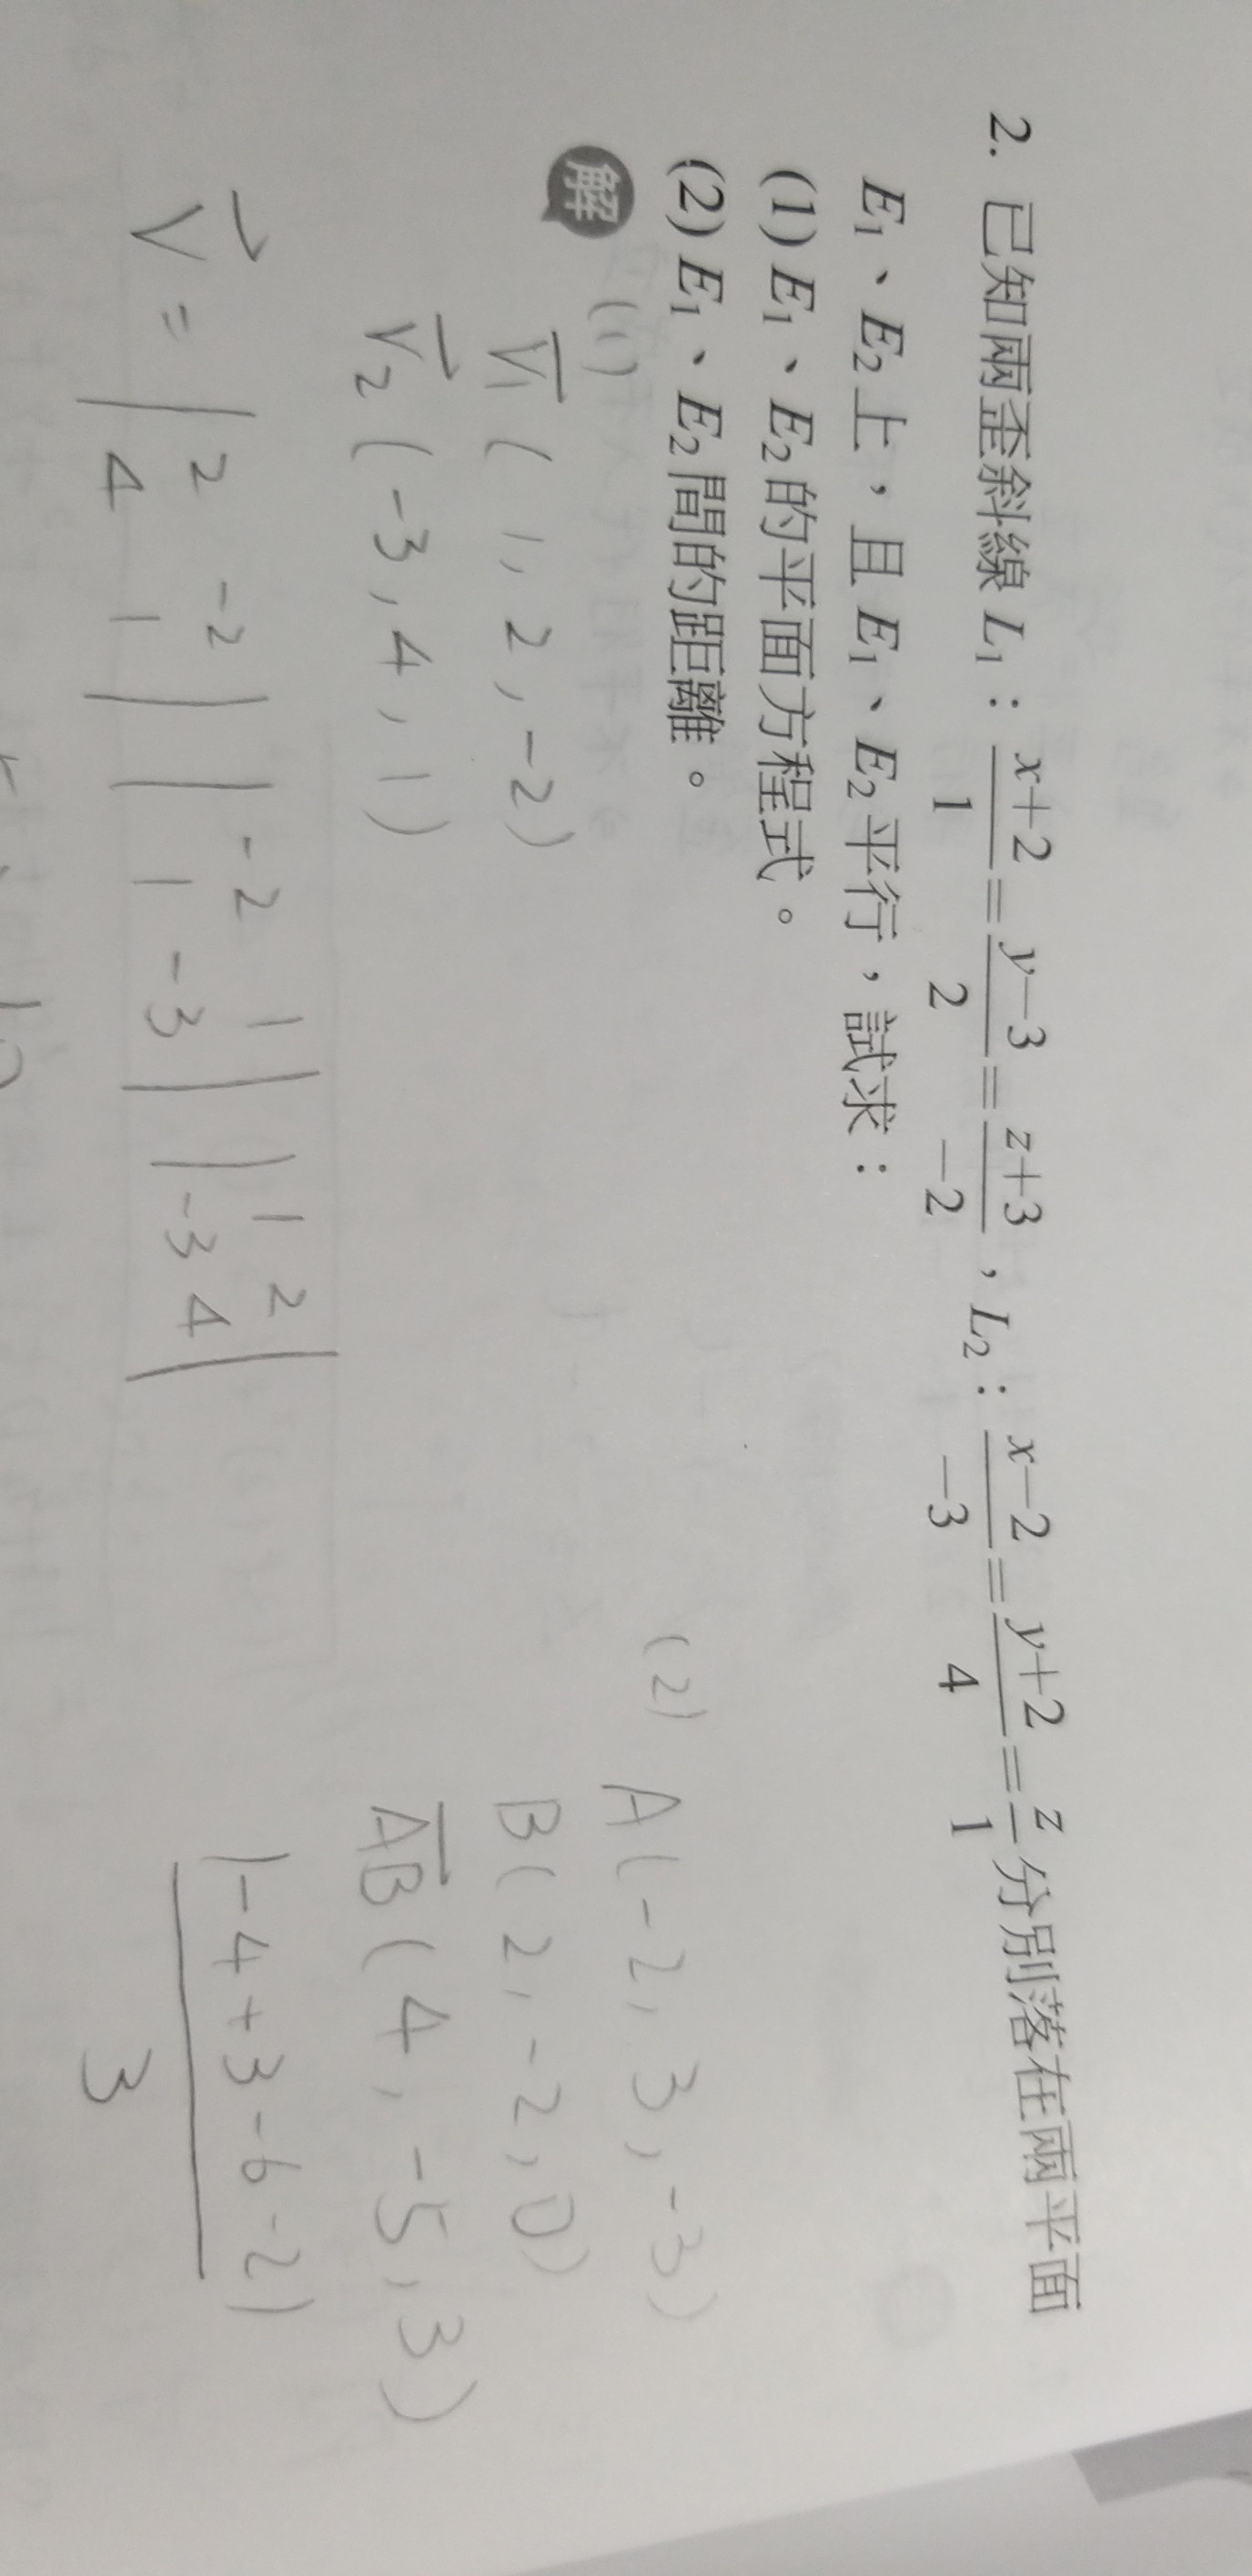 2. 已知兩歪斜線 L₁：(x+2)/1=(y−3)/2=(z+3)/−2，L₂：(x−2)/−3=(y+2)/4=z/1 分別落在兩平面
E₁、E₂上，且E₁、E₂平行，試求：
(1) E₁、E₂的平面方程式。
(2) E₁、E₂間的距離。
解
(1)
V₁ ( 1, 2, -2)
V₂ (-3, 4, 1)
V = | 2 -2 | | -2 1 | | 1 2 |
4 1 1 -3 -3 4
(2) A(-2, 3, -3)
B(2, -2, 0)
AB(4, -5, 3)
|-4+3-6-2|
3